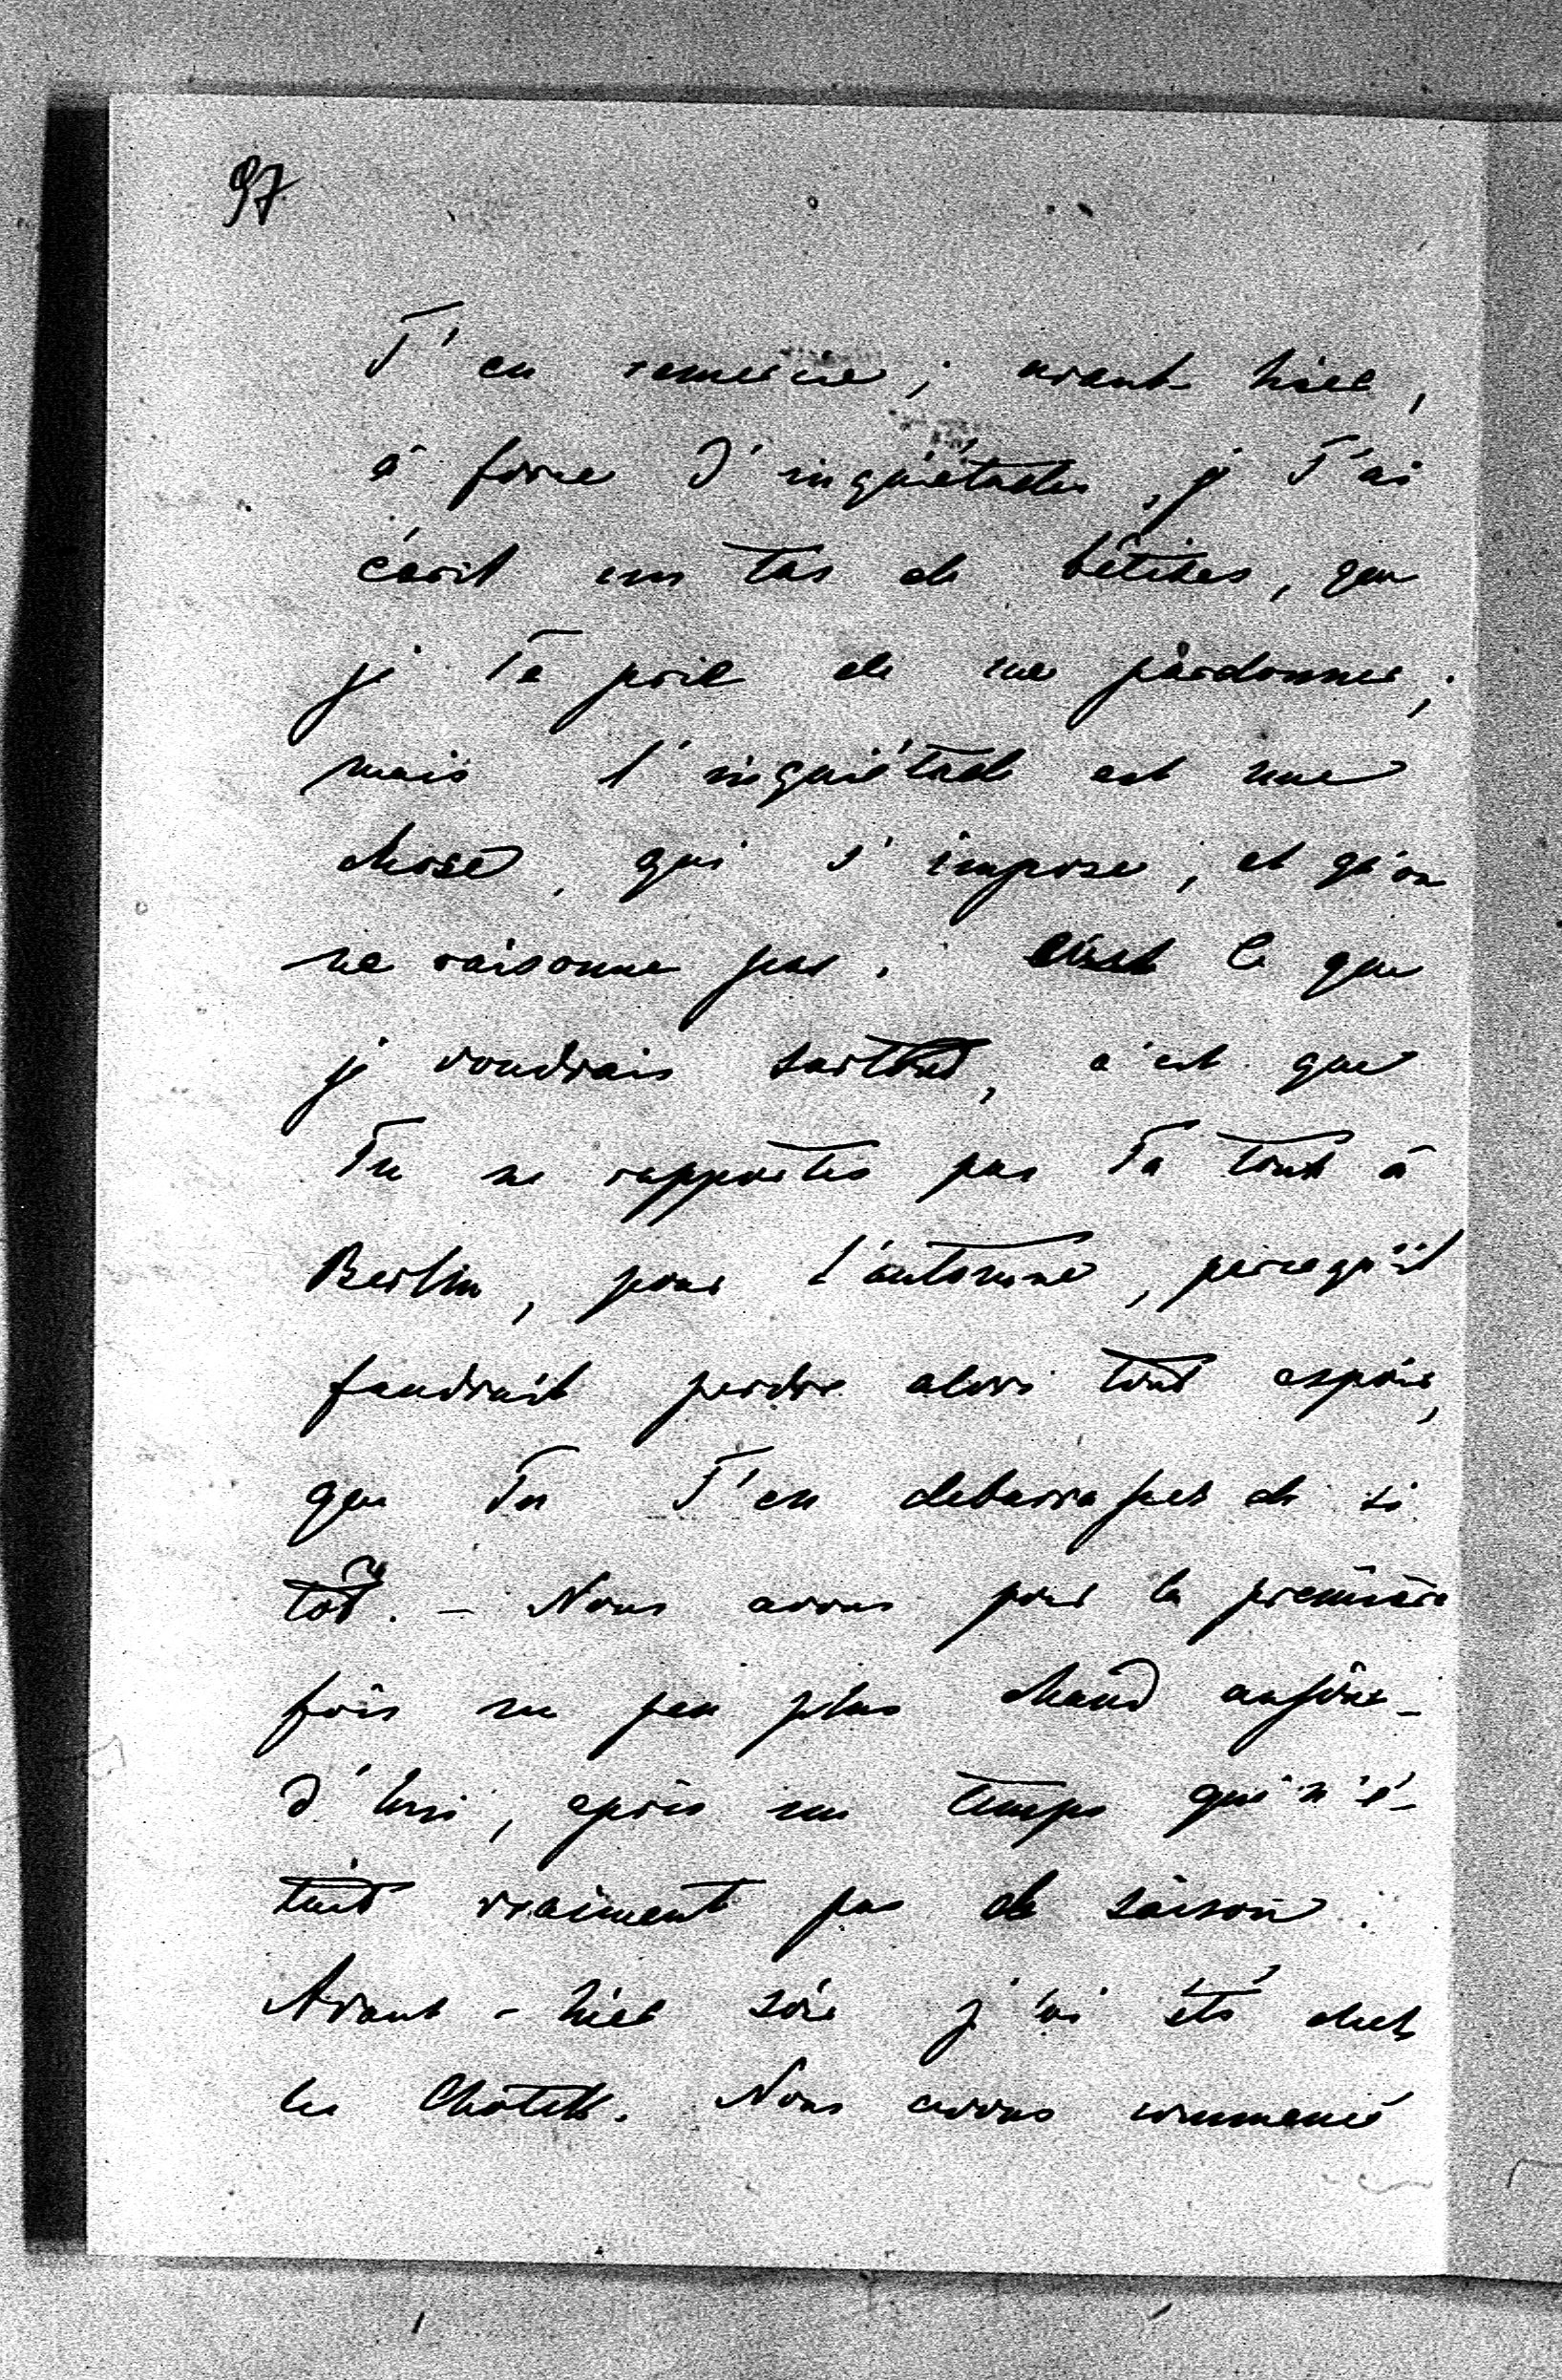 97
T'en remercie ; avant hier,
à force d'inquiétudes, je T'ai
écrit un tas de bêtises, que
je Te prie de me pardonner ;
mais l'inquiétude est une
chose, qui s'impose, et qu'on
ne raisonne pas. Ce que
je voudrais surtout, c'est que
Tu ne rapportes pas Ta toux à
Berlin, pour l'automne, parcequ'il
faudrait perdre alors tout espoir,
que Tu T'en debarrasses de si
tôt. – Nous avons pour la première
fois un peu plus chaud aujour-
d'hui, après un temps qui n'é-
tait vraiment pas de saison.
Avant-hier soir j'ai été chez
les Chotek. Nous avons commencé